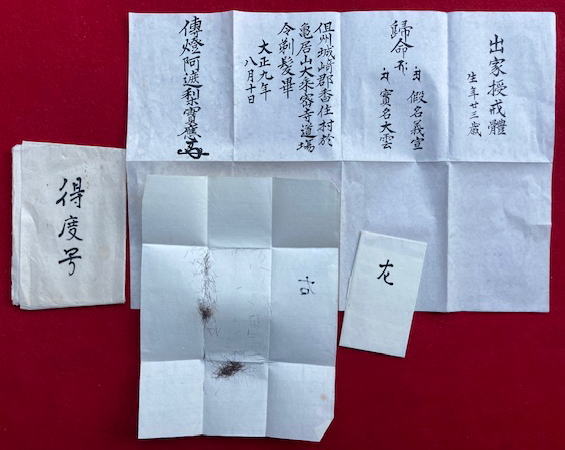 出家授戒體
生年廿三歳
歸命
假名義宣
實名大雲
但州城崎郡香住村於
亀居山大乘密寺道場
令剃髪畢
大正九年
八月十日
傳燈阿遮梨寶應
得度号
右
左